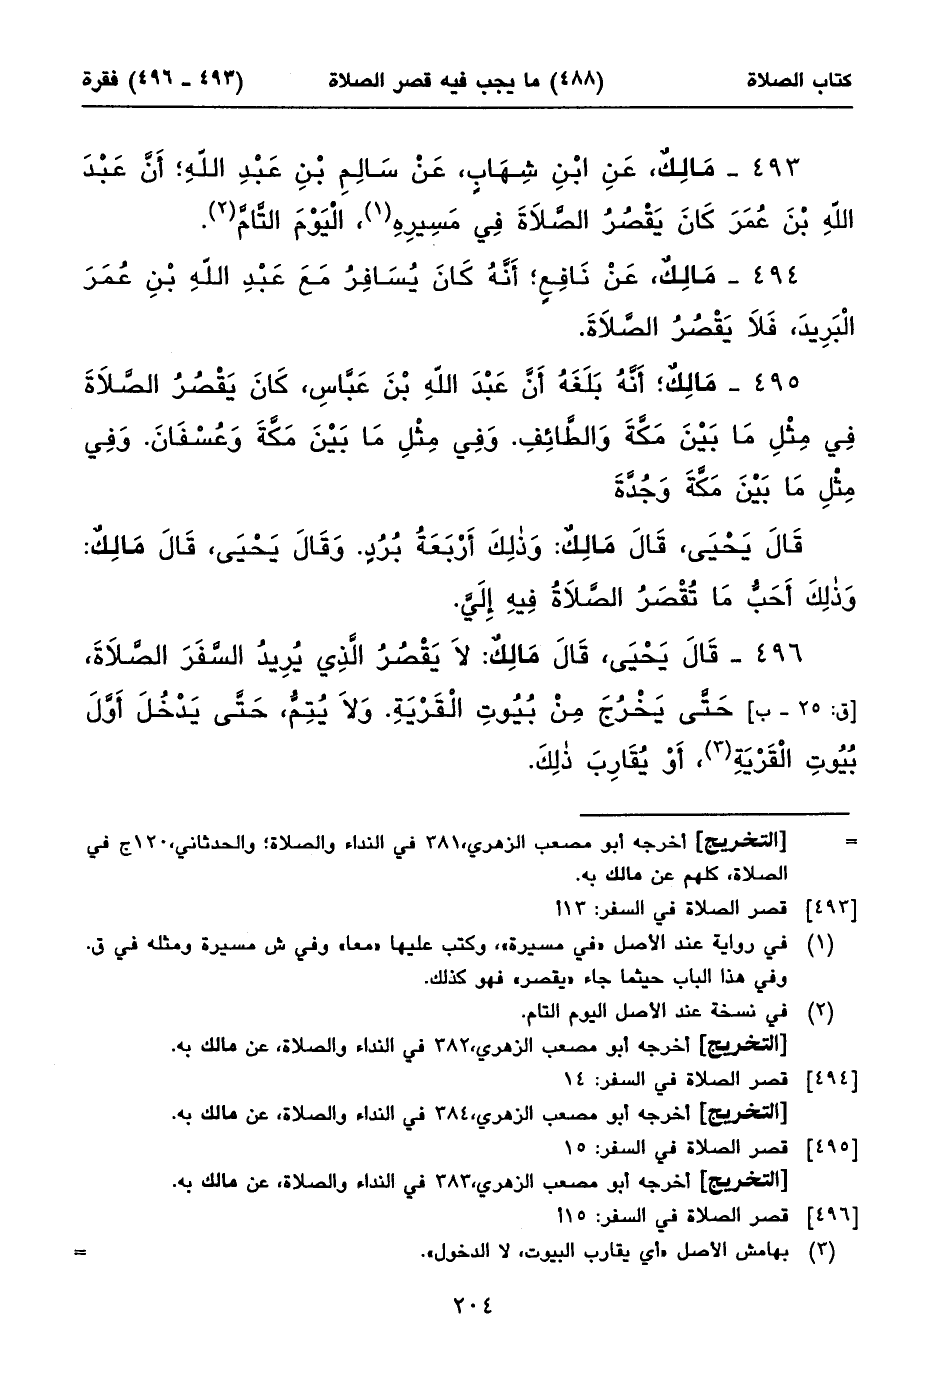 كتاب الصلاة (٤٨٨) ما يجب فيه قصر الصلاة (٤٩٣ ـ ٤٩٦) فقرة
٤٩٣ ـ مَالِكٌ، عَنِ ابْنِ شِهَابٍ، عَنْ سَالِمِ بْنِ عَبْدِ اللّهِ؛ أَنَّ عَبْدَ
اللّهِ بْنَ عُمَرَ كَانَ يَقْصُرُ الصَّلاَةَ فِي مَسِيرِهِ(١)، الْيَوْمَ التَّامَّ(٢).
٤٩٤ ـ مَالِكٌ، عَنْ نَافِعٍ؛ أَنَّهُ كَانَ يُسَافِرُ مَعَ عَبْدِ اللّهِ بْنِ عُمَرَ
الْبَرِيدَ، فَلاَ يَقْصُرُ الصَّلاَةَ.
٤٩٥ ـ مَالِكٌ؛ أَنَّهُ بَلَغَهُ أَنَّ عَبْدَ اللّهِ بْنَ عَبَّاسٍ، كَانَ يَقْصُرُ الصَّلاَةَ
فِي مِثْلِ مَا بَيْنَ مَكَّةَ وَالطَّائِفِ. وَفِي مِثْلِ مَا بَيْنَ مَكَّةَ وَعُسْفَانَ. وَفِي
مِثْلِ مَا بَيْنَ مَكَّةَ وَجُدَّةَ
قَالَ يَحْيَى، قَالَ مَالِكٌ: وَذٰلِكَ أَرْبَعَةُ بُرُدٍ. وَقَالَ يَحْيَى، قَالَ مَالِكٌ:
وَذٰلِكَ أَحَبُّ مَا تُقْصَرُ الصَّلاَةُ فِيهِ إِلَيَّ.
٤٩٦ ـ قَالَ يَحْيَى، قَالَ مَالِكٌ: لاَ يَقْصُرُ الَّذِي يُرِيدُ السَّفَرَ الصَّلاَةَ،
[ق: ٢٥ ـ ب] حَتَّى يَخْرُجَ مِنْ بُيُوتِ الْقَرْيَةِ. وَلاَ يُتِمُّ، حَتَّى يَدْخُلَ أَوَّلَ
بُيُوتِ الْقَرْيَةِ(٣)، أَوْ يُقَارِبَ ذٰلِكَ.
= [التخريج] أخرجه أبو مصعب الزهري،٣٨١ في النداء والصلاة؛ والحدثاني،١٢٠ج في
الصلاة، كلهم عن مالك به.
[٤٩٣] قصر الصلاة في السفر: ١٣أ
(١) في رواية عند الأصل «في مسيرة»، وكتب عليها «معا» وفي ش مسيرة ومثله في ق.
وفي هذا الباب حيثما جاء «يقصر» فهو كذلك.
(٢) في نسخة عند الأصل اليوم التام.
[التخريج] أخرجه أبو مصعب الزهري،٣٨٢ في النداء والصلاة، عن مالك به.
[٤٩٤] قصر الصلاة في السفر: ١٤
[التخريج] أخرجه أبو مصعب الزهري،٣٨٤ في النداء والصلاة، عن مالك به.
[٤٩٥] قصر الصلاة في السفر: ١٥
[التخريج] أخرجه أبو مصعب الزهري،٣٨٣ في النداء والصلاة، عن مالك به.
[٤٩٦] قصر الصلاة في السفر: ١٥أ
(٣) بهامش الأصل «أي يقارب البيوت، لا الدخول». =
٢٠٤